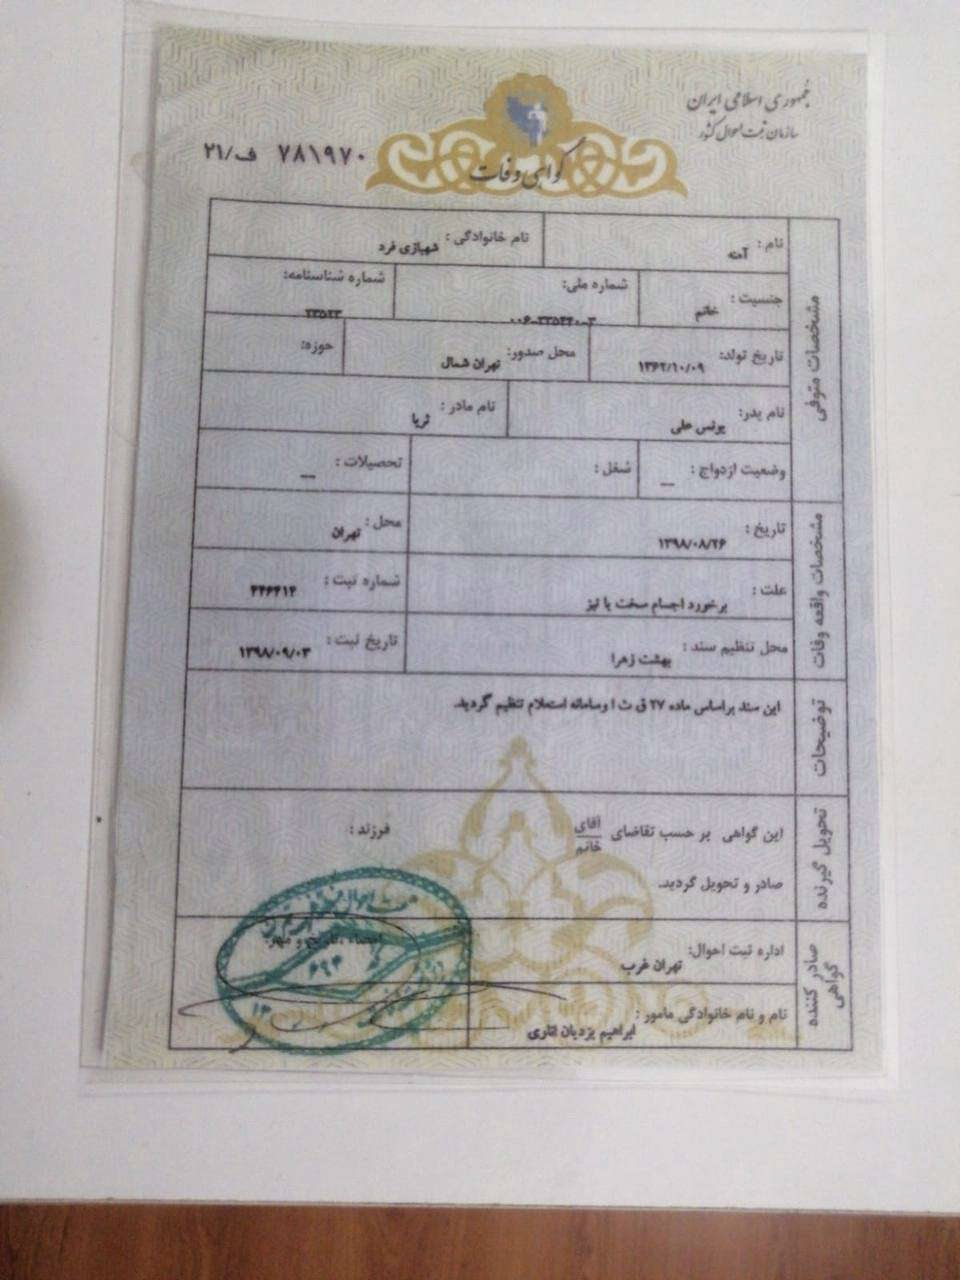 جمهوری اسلامی ایران
سازمان ثبت احوال کشور
گواهی وفات
۷۸۱۹۷۰ ف/۲۱
مشخصات متوفی
نام: آمنه
نام خانوادگی: شهبازی فرد
جنسیت: خانم
شماره ملی:
شماره شناسنامه:
تاریخ تولد: ۱۳۶۲/۱۰/۰۹
محل صدور: تهران شمال
حوزه:
نام پدر: یونس علی
نام مادر: ثریا
وضعیت ازدواج: __
شغل:
تحصیلات: __
مشخصات واقعه وفات
تاریخ: ۱۳۹۸/۰۸/۲۶
محل: تهران
علت: برخورد اجسام سخت یا تیز
شماره ثبت:
محل تنظیم سند: بهشت زهرا
تاریخ ثبت: ۱۳۹۸/۰۹/۰۳
توضیحات
این سند براساس ماده ۲۷ ق ث ا وسامانه استعلام تنظیم گردید.
تحویل گیرنده
این گواهی بر حسب تقاضای آقای خانم فرزند:
صادر و تحویل گردید.
صادر کننده گواهی
اداره ثبت احوال: تهران غرب
امضاء، تاریخ و مهر:
نام و نام خانوادگی مامور: ابراهیم یزدیان اناری